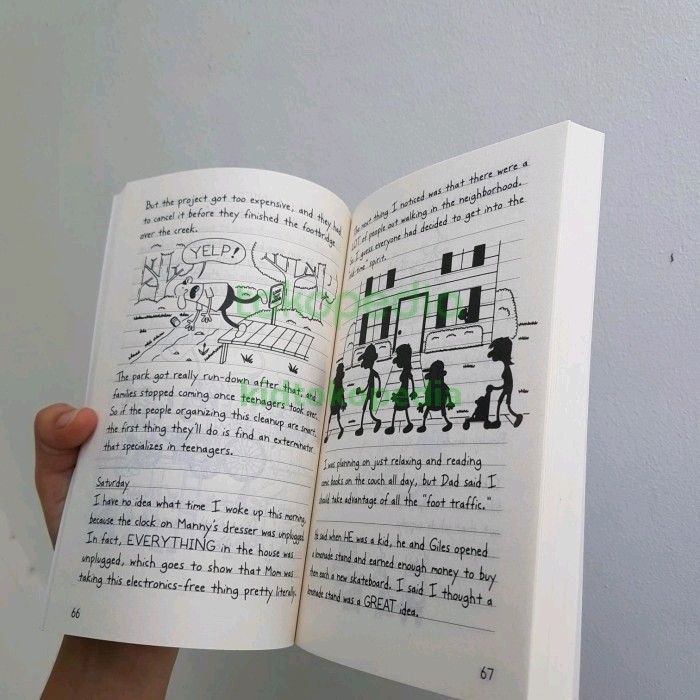 But the project got too expensive, and they had
to cancel it before they finished the footbridge
over the creek.
YELP!
The park got really run-down after that, and
families stopped coming once teenagers took over.
So if the people organizing this cleanup are smart,
the first thing they'll do is find an exterminator
that specializes in teenagers.
Saturday
I have no idea what time I woke up this morning,
because the clock on Manny's dresser was unplugged.
In fact, EVERYTHING in the house was
unplugged, which goes to show that Mom was
taking this electronics-free thing pretty literally.
66
next thing I noticed was that there were a
LOT of people out walking in the neighborhood.
So I guess everyone had decided to get into the
time" spirit.
I was planning on just relaxing and reading
books on the couch all day, but Dad said I
should take advantage of all the "foot traffic."
said when HE was a kid, he and Giles opened
a lemonade stand and earned enough money to buy
them each a new skateboard. I said I thought a
lemonade stand was a GREAT idea.
67
tokopedia
kidtokopedia